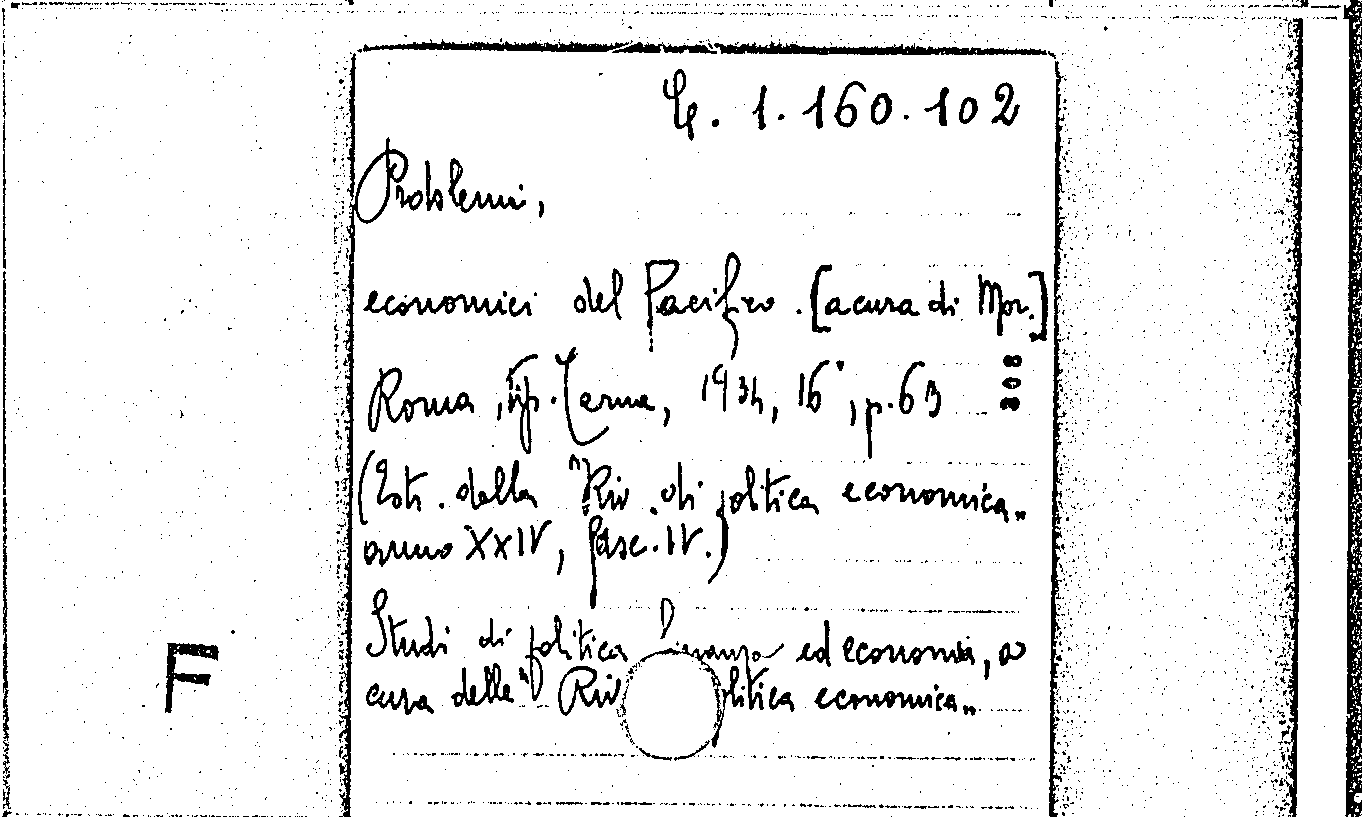 1.160.102
Problemi,
economici del Pacifico. [a cura di Mpr.]
Roma, tip. Terme, 1934, 16°, p. 63
308
(Estr. della "Riv. di politica economica„
anno XXIV, fasc. IV.)
Studi di politica finanza ed economia, a
cura delle " Riv litica economica„
F